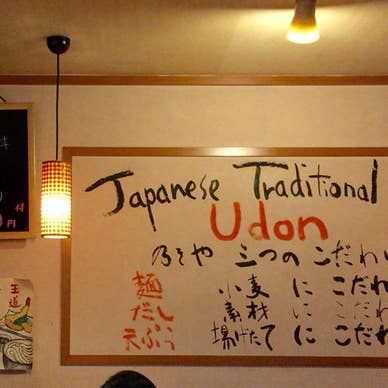 Japanese Traditional
Udon
乃らや 三つの こだわり
麺 小麦 に こだわ
だし 素材 に こだわ
天ぷら 揚げたて に こだわ
王道
付
円